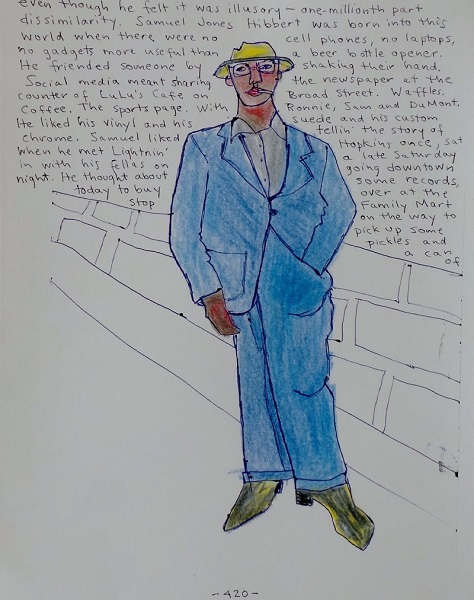 even though he felt it was illusory — one-millionth part
dissimilarity. Samuel Jones Hibbert was born into this
world when there were no cell phones, no laptops,
no gadgets more useful than a beer bottle opener.
He friended someone by shaking their hand.
Social media meant sharing the newspaper at the
counter of LuLu's Cafe on Broad Street. Waffles.
Coffee. The sports page. With Ronnie, Sam and DuMont.
He liked his vinyl and his suede and his custom
chrome. Samuel liked tellin' the story of
when he met Lightnin' Hopkins once, sat
in with his fellas on a late Saturday
night. He thought about going downtown
today to buy some records,
stop over at the
Family Mart
on the way to
pick up some
pickles and
a can
of
-420-